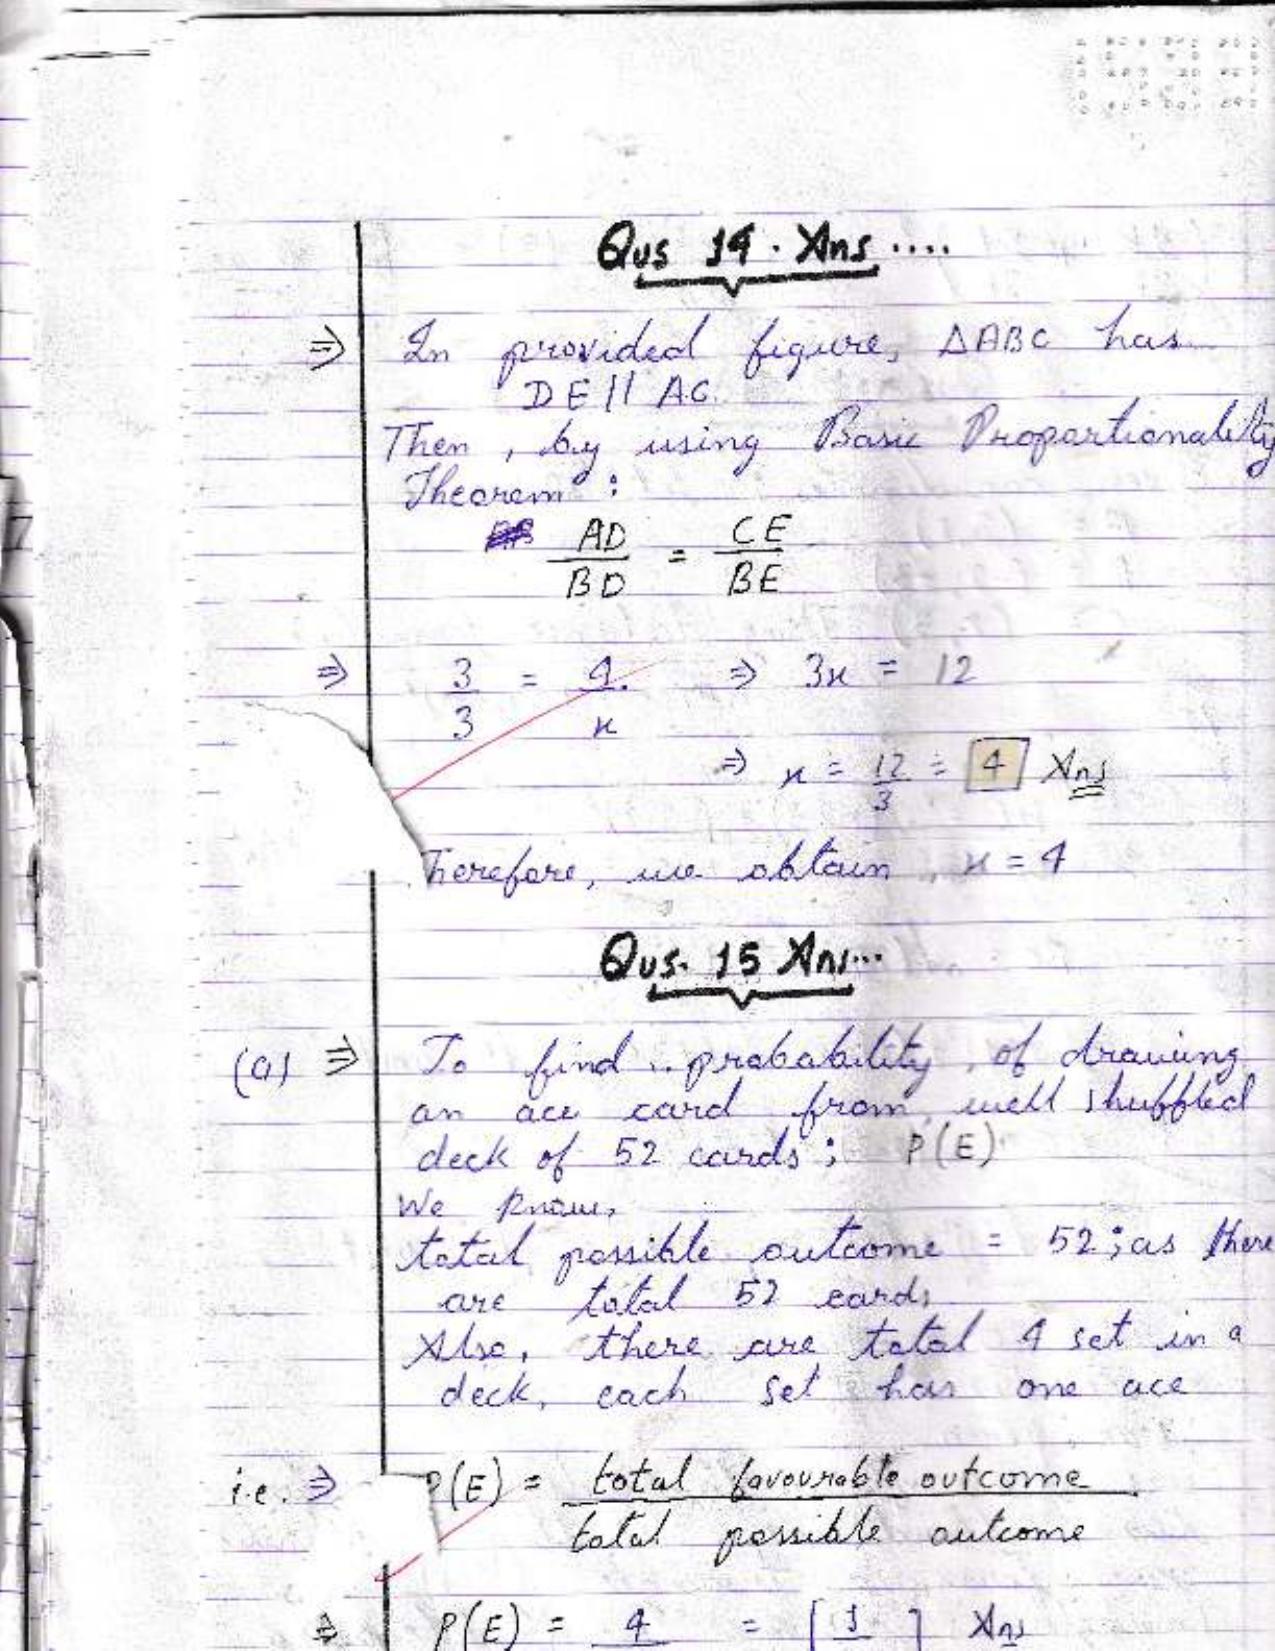 Qus 14. Ans ....
⇒ In provided figure, ΔABC has
DE || AC.
Then, by using Basic Proportionality
Theorem :
AD/BD = CE/BE
⇒ 3/3 = 4/x ⇒ 3x = 12
⇒ x = 12/3 = 4 Ans
Therefore, we obtain x = 4
Qus. 15 Ans...
(a) ⇒ To find probability of drawing
an ace card from well shuffled
deck of 52 cards ; P(E)
We know,
total possible outcome = 52 ; as there
are total 52 cards
Also, there are total 4 set in a
deck, each set has one ace
i.e. ⇒ P(E) = total favourable outcome
total possible outcome
⇒ P(E) = 4 = 1 Ans